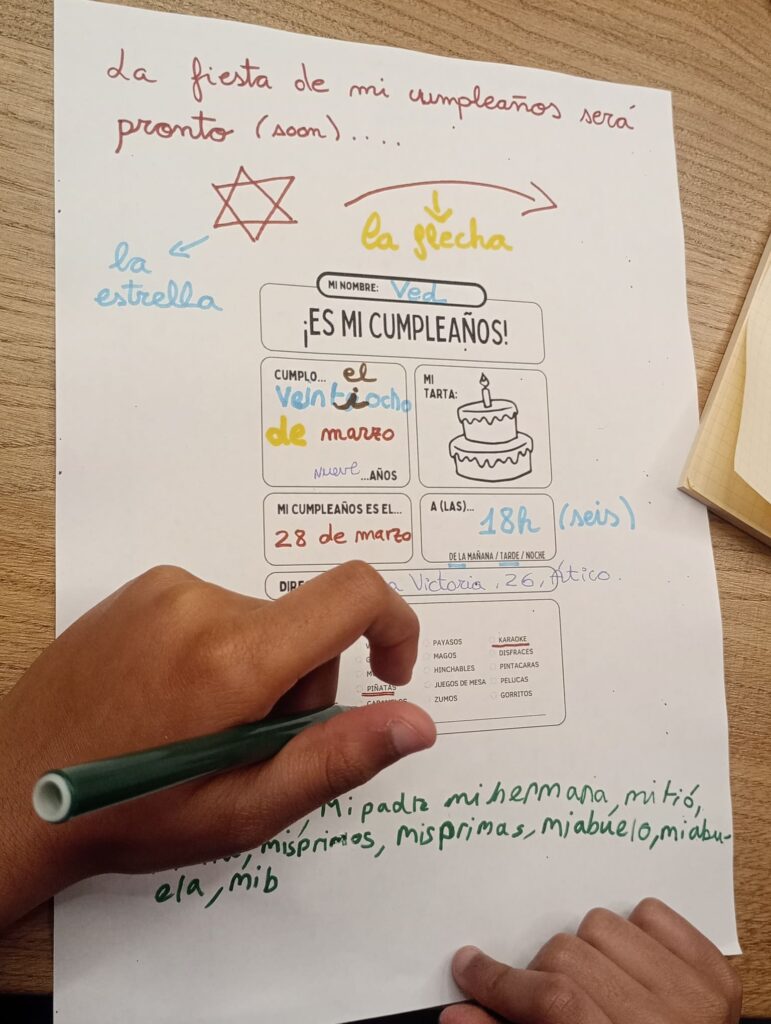 La fiesta de mi cumpleaños será
pronto (soon)....
la flecha
la
estrella
MI NOMBRE: Ved
¡ES MI CUMPLEAÑOS!
CUMPLO... el
veintiocho
de marzo
nueve ...AÑOS
MI
TARTA:
MI CUMPLEAÑOS ES EL...
28 de marzo
A (LAS)...
18h (seis)
DE LA MAÑANA / TARDE / NOCHE
Victoria, 26, Ático.
PAYASOS
MAGOS
HINCHABLES
JUEGOS DE MESA
ZUMOS
KARAOKE
DISFRACES
PINTACARAS
PELUCAS
GORRITOS
PIÑATAS
Mi padre mi hermana, mi tió,
misprimos, misprimas, miabuelo, miabu-
ela, mib